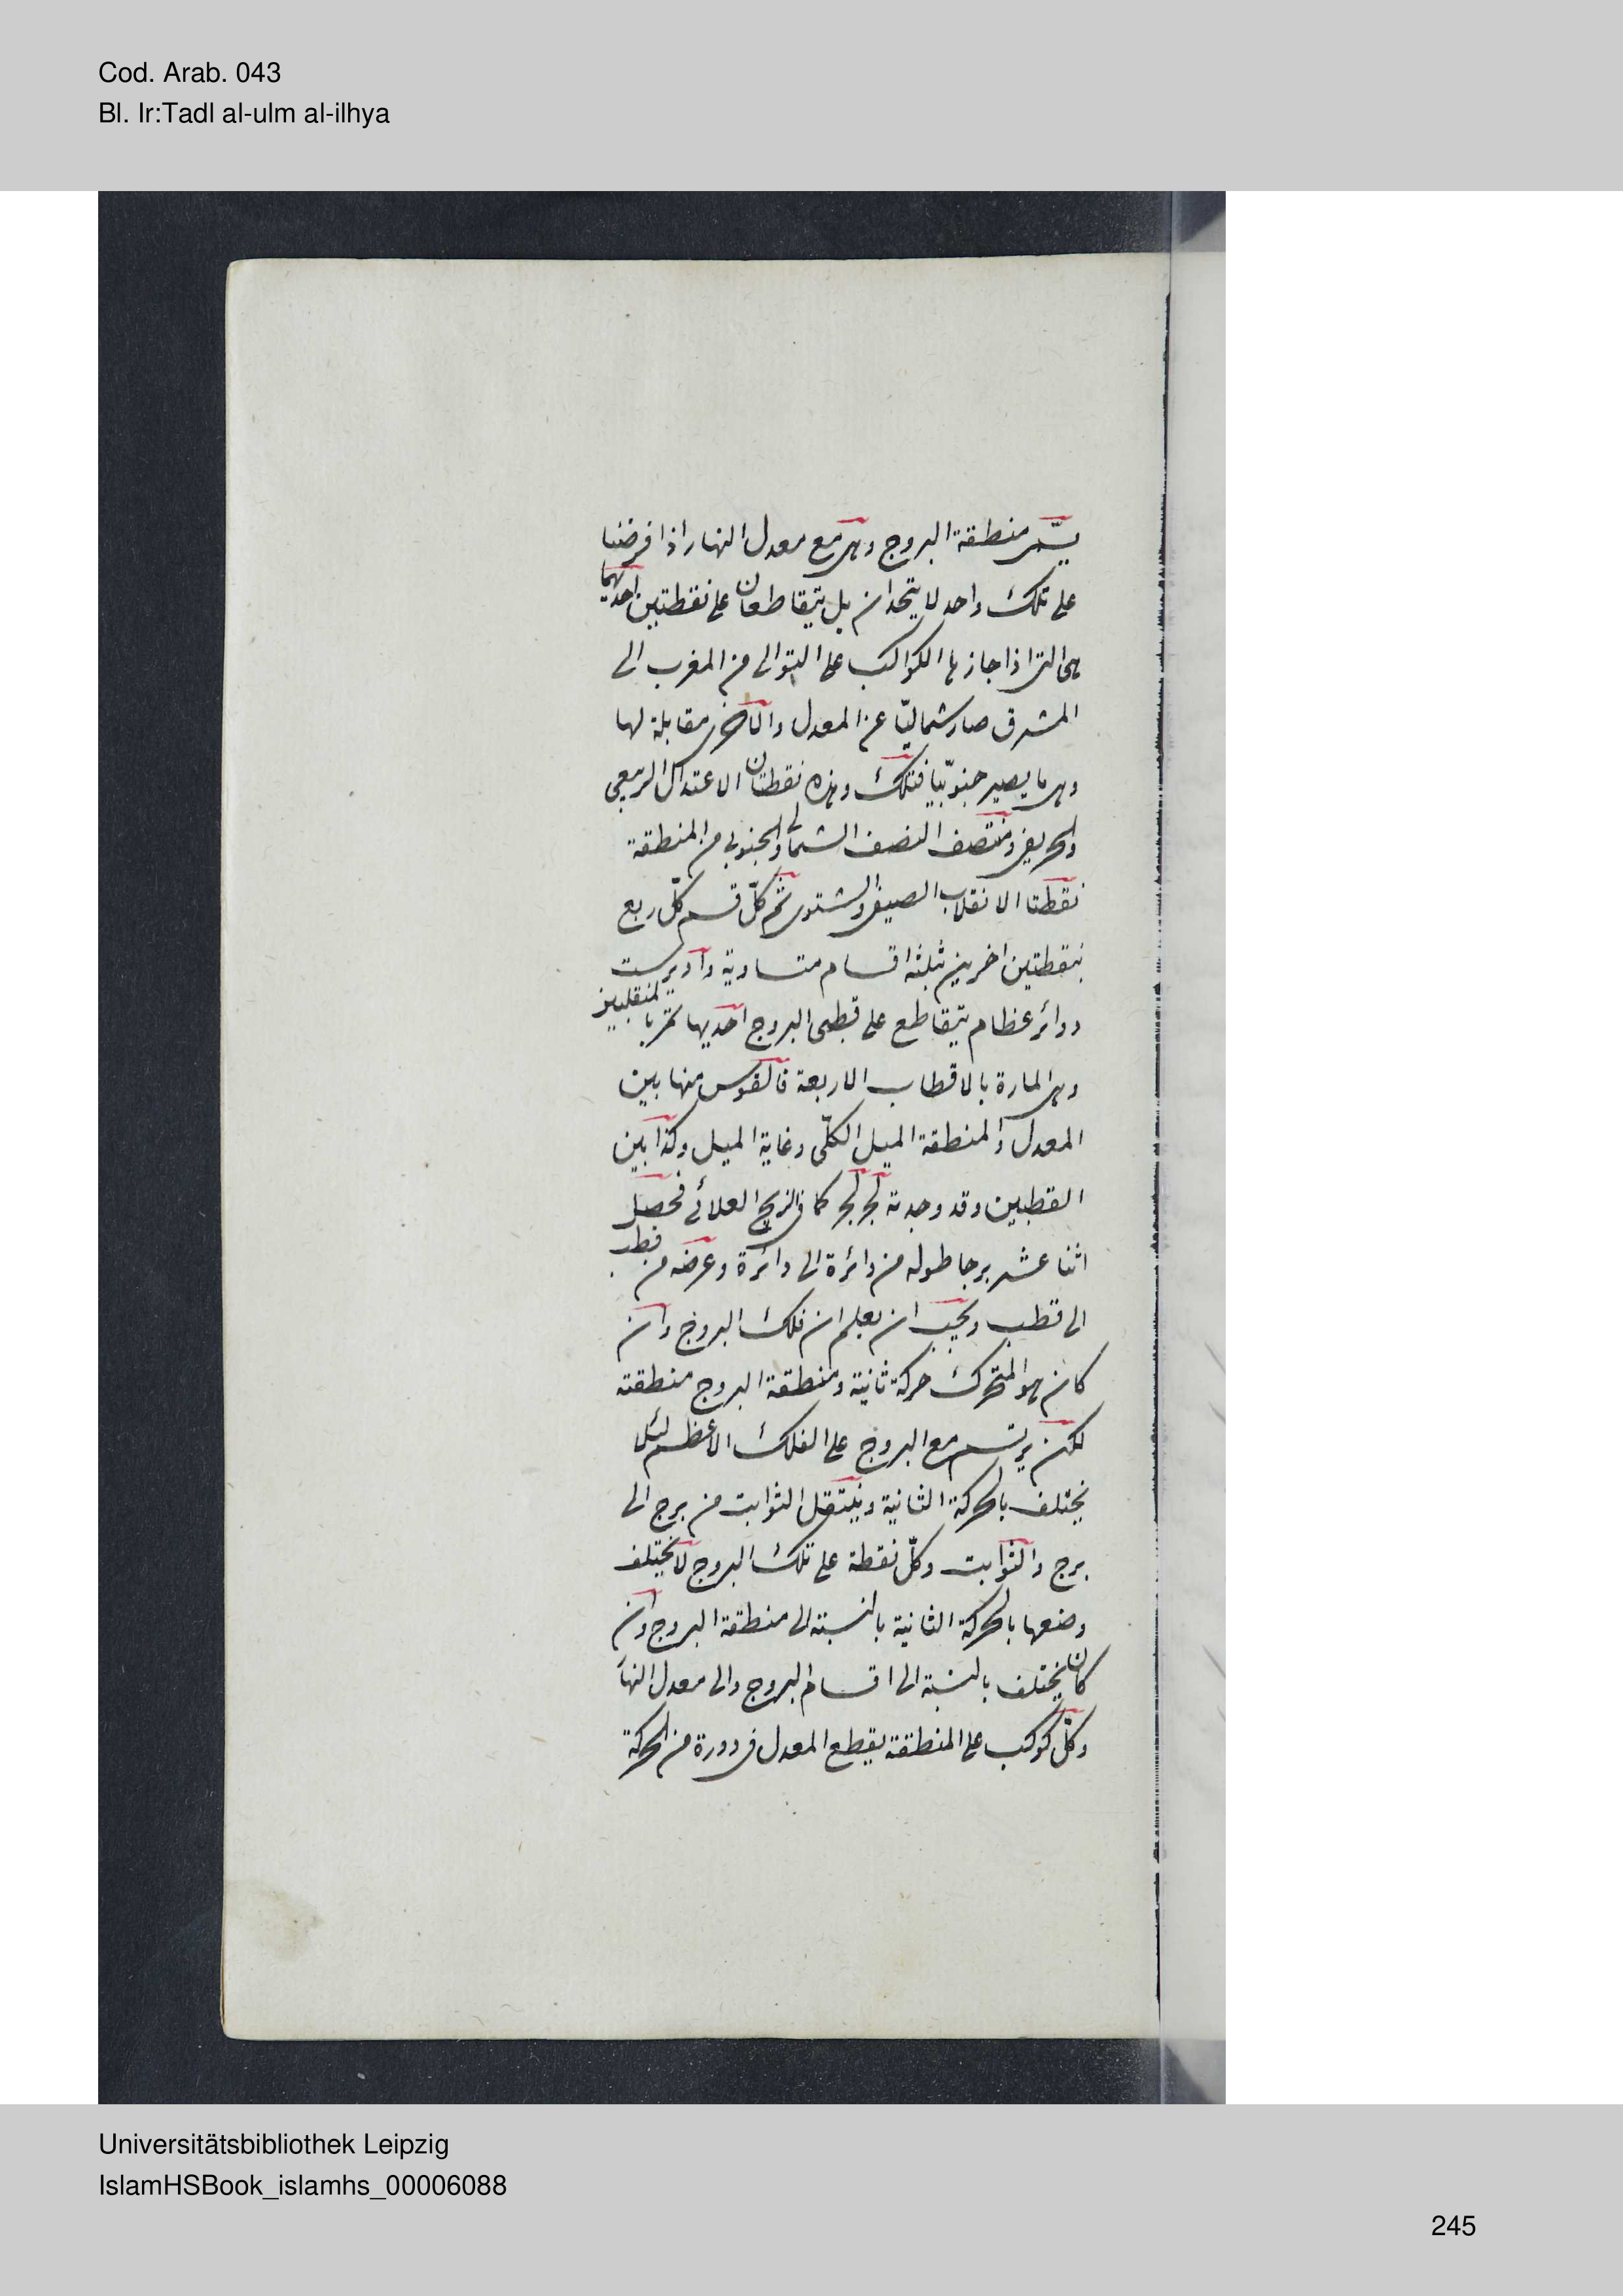 Cod. Arab. 043
Bl. Ir:Tadl al-ulm al-ilhya
يسمّى منطقة البروج وهى مع معدل النهار اذا فرضنا
على تلك واحد لا يتحدان بل يتقاطعان على نقطتين احديهما
هى التى اذا جاز بها الكواكب على التوالى من المغرب الى
المشرق صار شماليّا عن المعدل والاخرى مقابلة لها
وهى ما يصير جنوبيّا فتلك وهذه نقطتان الاعتدال الربيعى
والخريفى ومنتصف النصف الشمالى والجنوبى من المنطقة
نقطتا الانقلاب الصيفى والشتوى ثم كلّ قسم كلّ ربع
بنقطتين اخرين بثلثه اقسام متساوية وادير ست
دوائر عظام يتقاطع على قطبى البروج احديها تمر بالمنقلبين
وهى المارة بالاقطاب الاربعة فالقوس منها بين
المعدل والمنطقة الميل الكلّى وغاية الميل وكذا بين
القطبين وقد وجدته كما فى الزيج العلائى فحصل
اثنا عشر برجا طوله من دائرة الى دائرة وعرضه من قطب
الى قطب ويجب ان يعلم ان فلك البروج وان
كان هو المتحرك حركة ثانية ومنطقة البروج منطقته
لكن يرتسم مع البروج على الفلك الاعظم لئلا
يختلف بالحركة الثانية وينتقل الثوابت من برج الى
برج والثوابت وكلّ نقطة على تلك البروج لا يختلف
وضعها بالحركة الثانية بالنسبته الى منطقة البروج وان
كان يختلف بالنسبة الى اقسام البروج والى معدل النها
وكلّ كوكب على المنطقته يقطع المعدل فى دورة من الحركة
Universitätsbibliothek Leipzig
IslamHSBook_islamhs_00006088
245